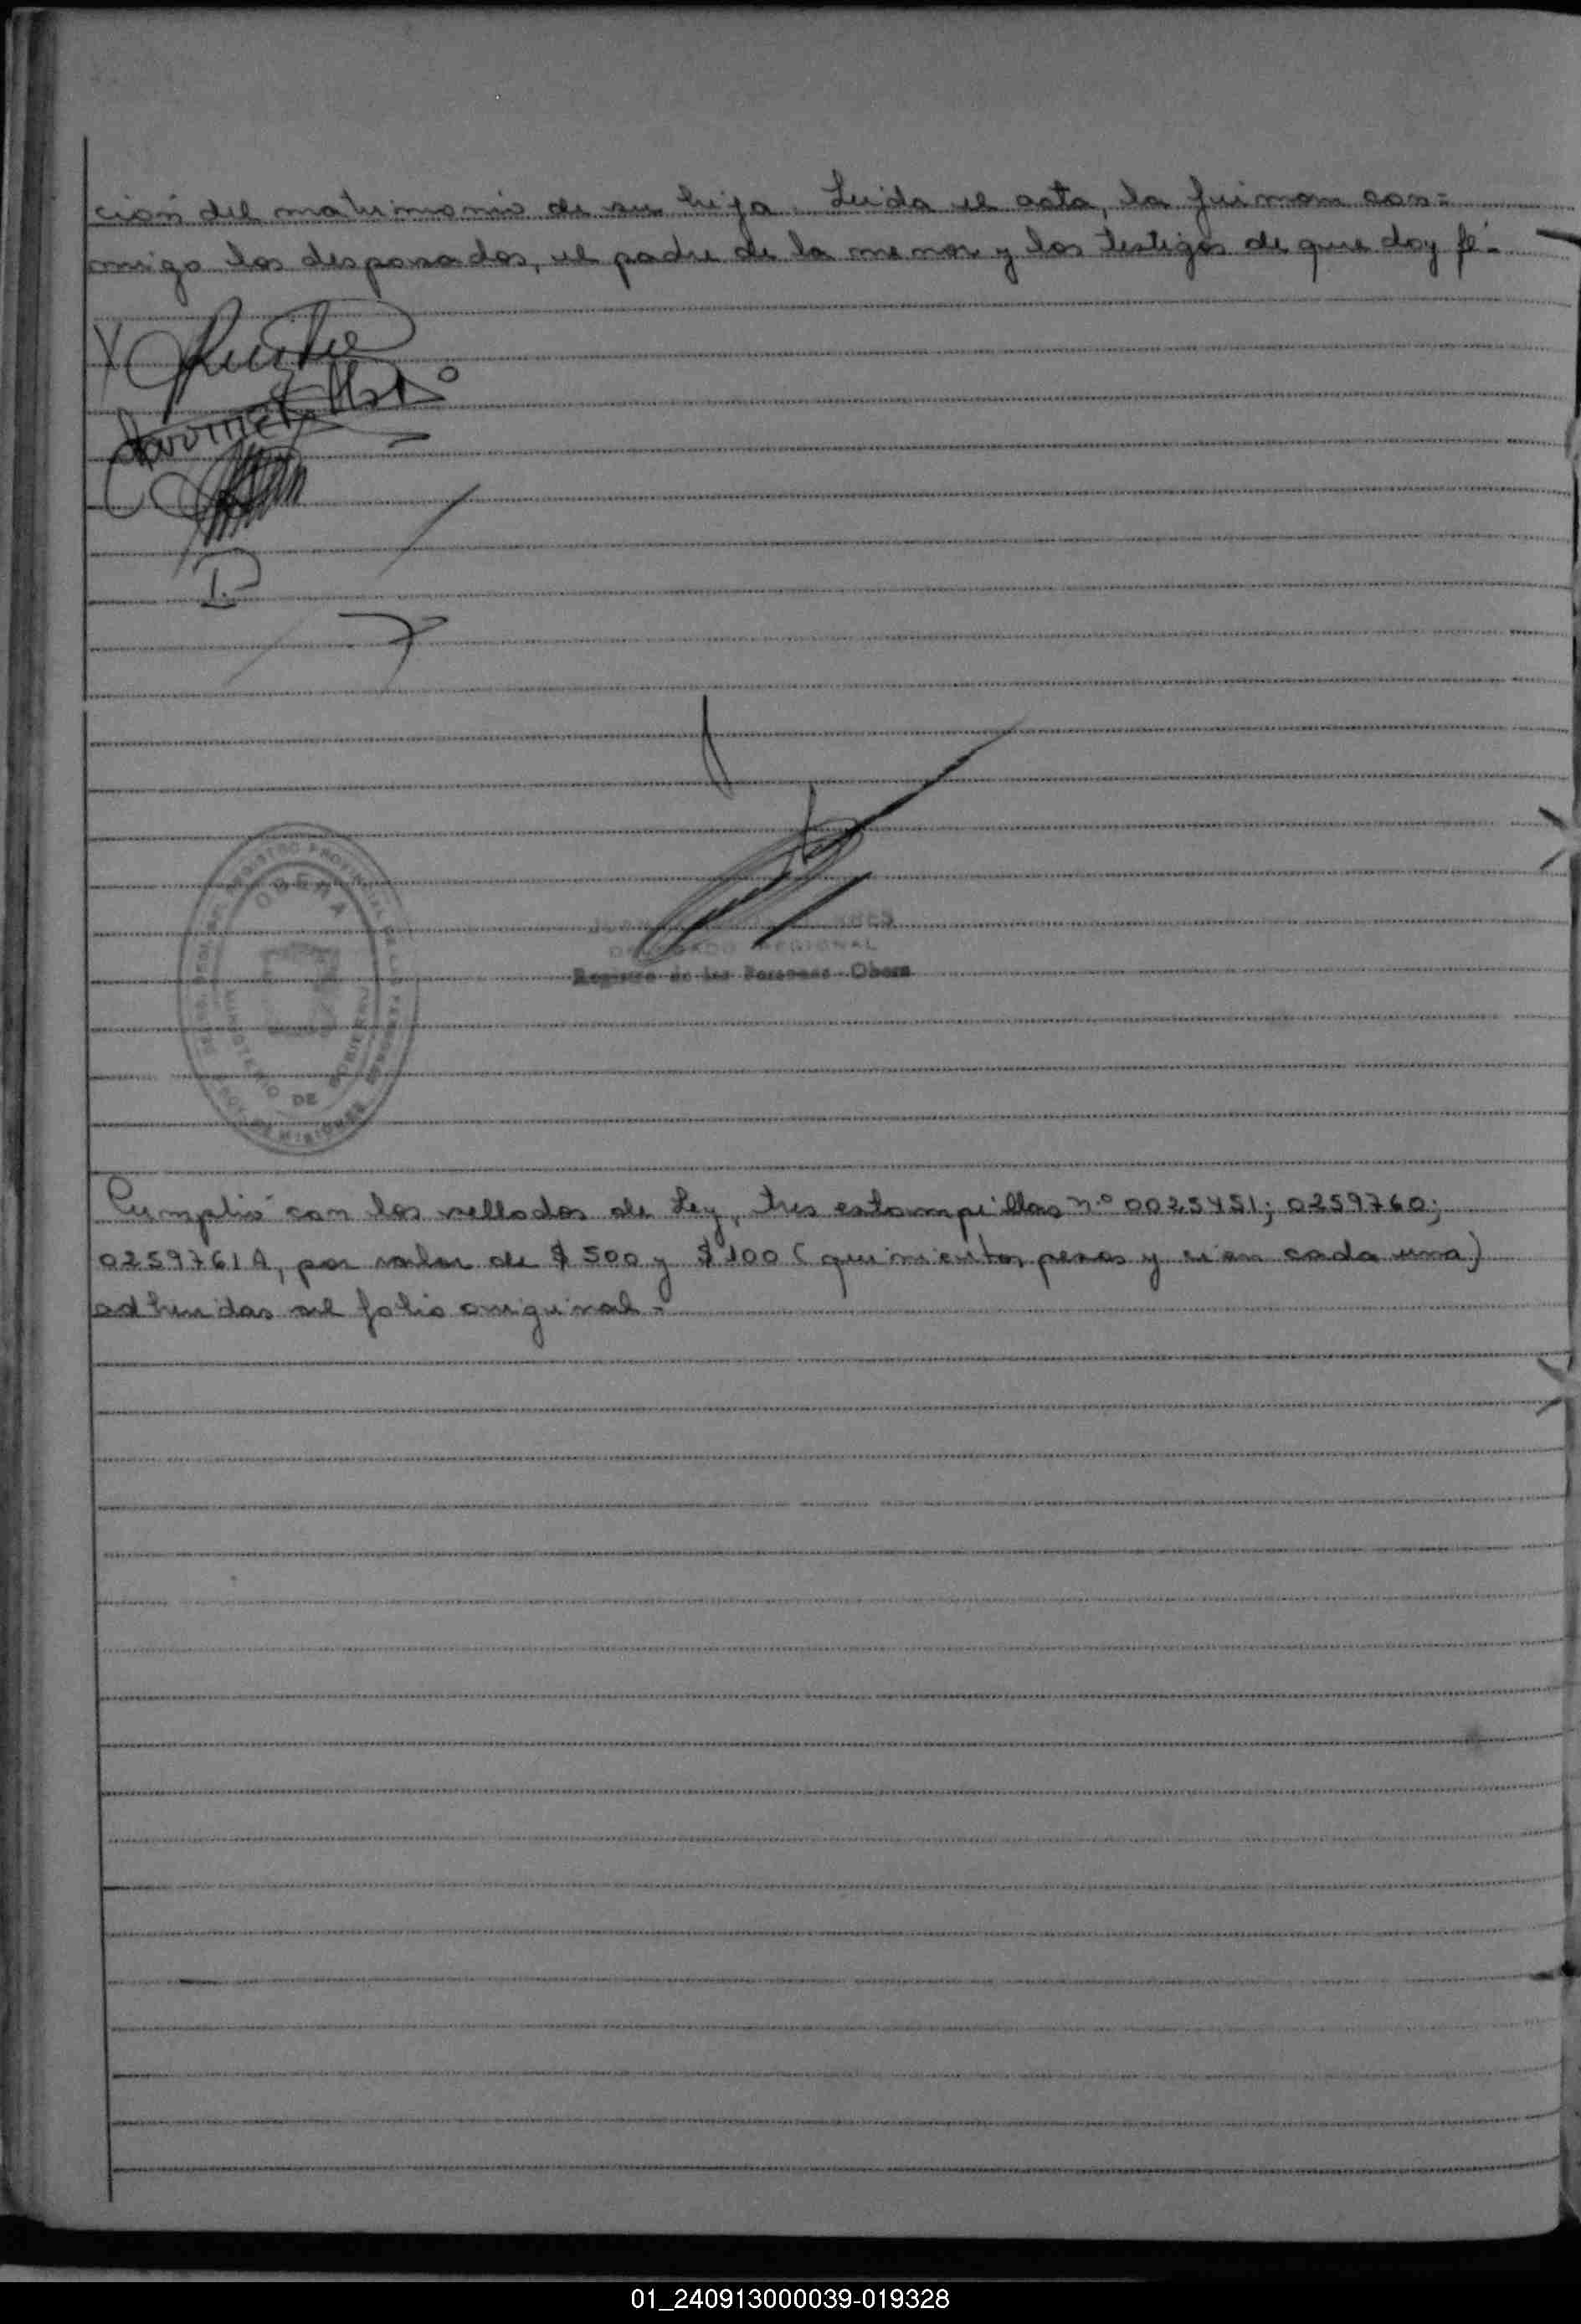 ción del matrimonio de su hija. Leída el acta, la firman con=
migo los desposados, el padre de la menor y los testigos de que doy fé.-
OBERA
REGISTRO PROVINCIAL DE LAS PERSONAS
MINISTERIO DE GOBIERNO
MISIONES
DELEGADO REGIONAL
Registro de las Personas - Obera
Cumplió con los sellados de Ley, tres estampillas n.º 0025451; 0259760;
0259761A, por valor de $ 500 y $ 100 (quinientos pesos y cien cada una)
adheridas al folio original.-
01_240913000039-019328